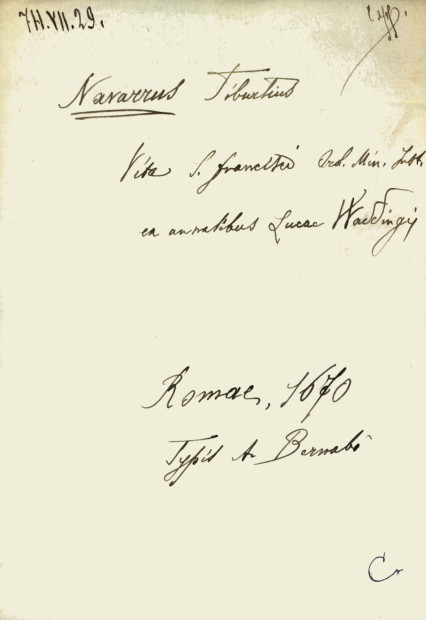 7H.VII.29.
Navarrus Tiburtius
Vita S. Francisci Ord. Min. Inst.
ex annalibus Lucae Waddingij
Romae, 1670
Typis A. Bernabò